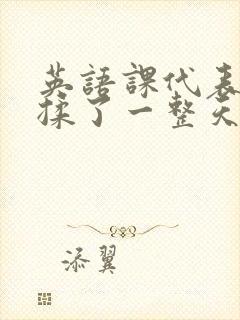 英語課代表
揉了一整天
添翼